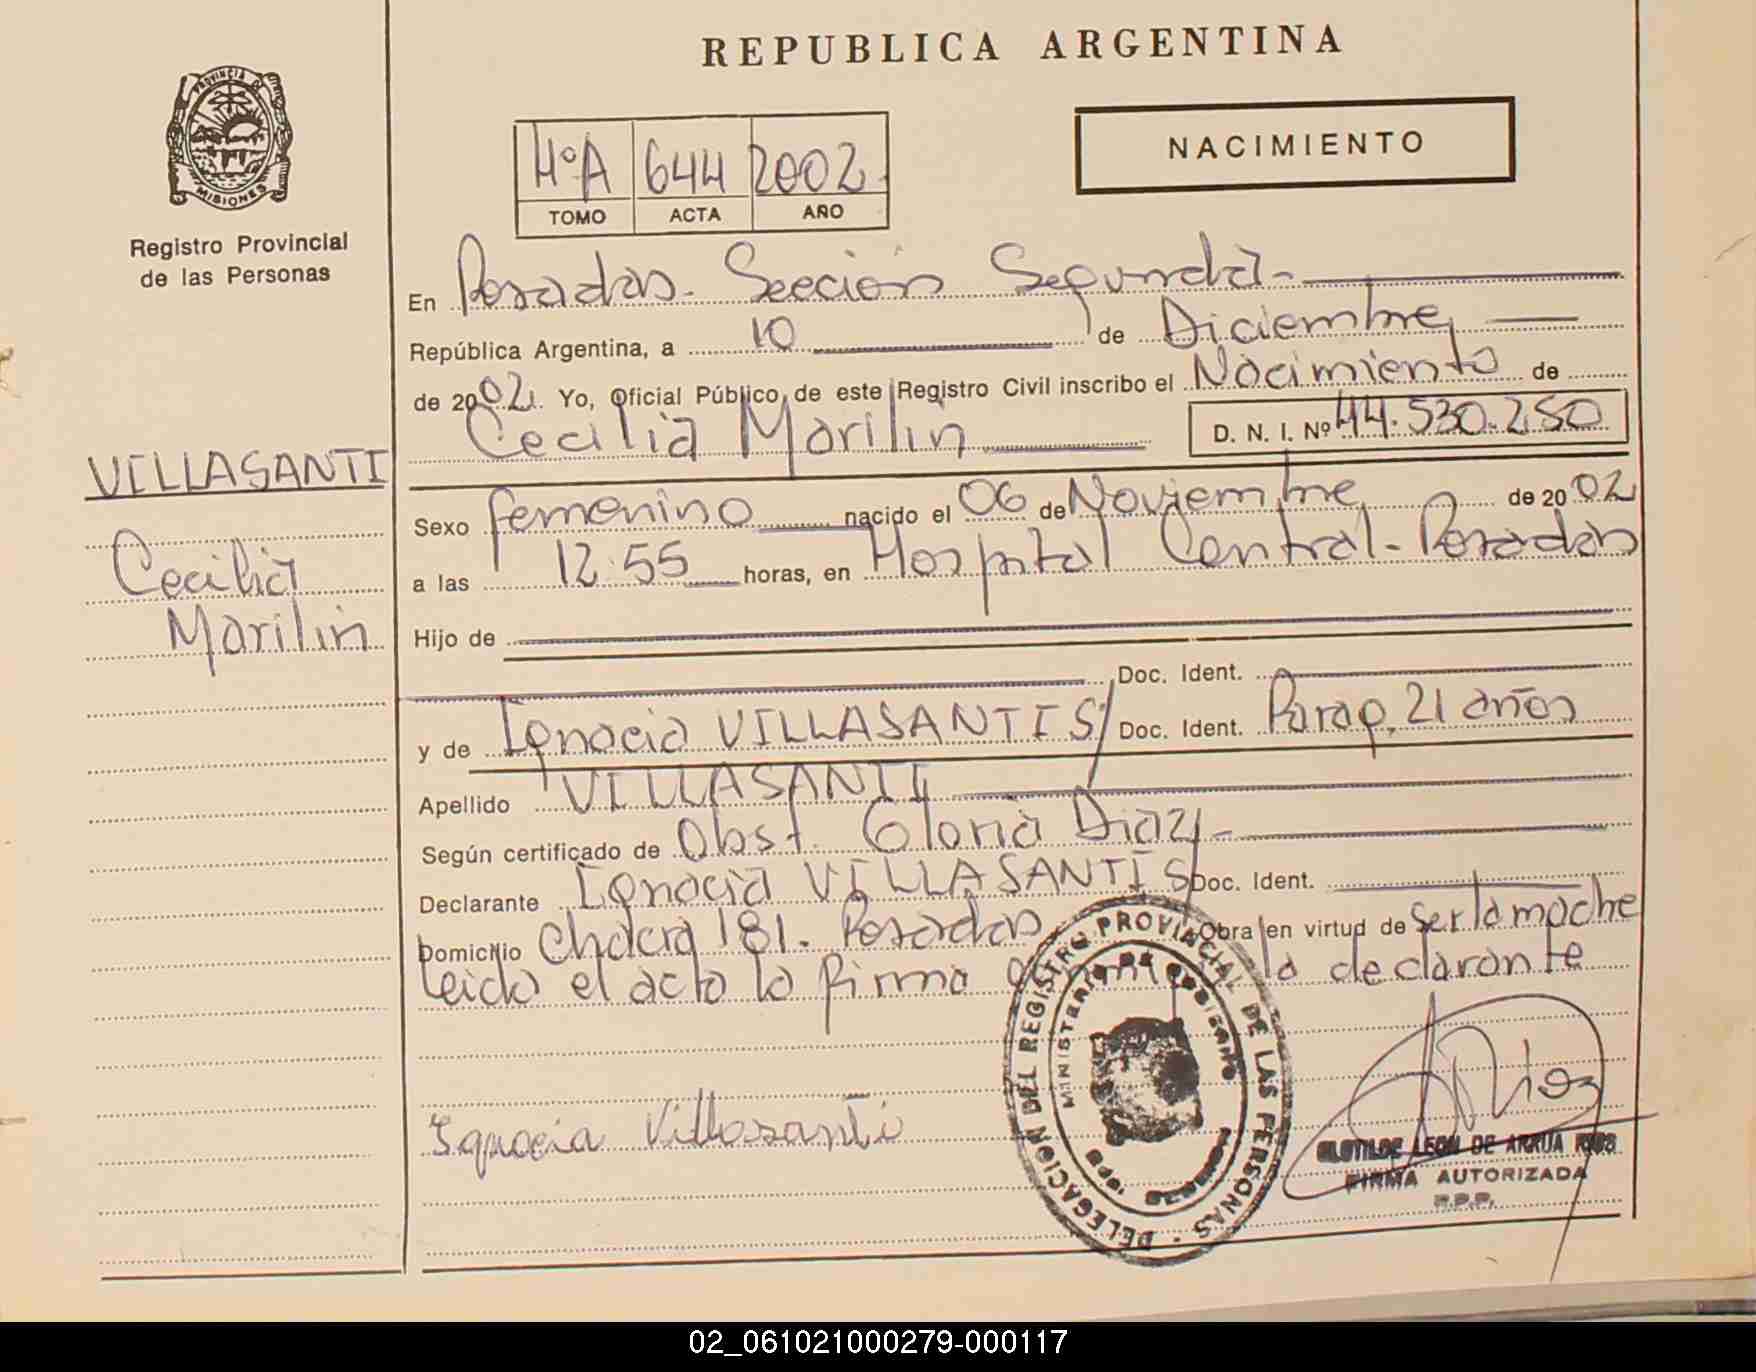 REPUBLICA ARGENTINA
PROVINCIA DE
MISIONES
Registro Provincial
de las Personas
NACIMIENTO
4ºA 644 2002
TOMO ACTA AÑO
En Posadas - Sección Segunda -
República Argentina, a 10 de Diciembre
de 2002 Yo, Oficial Público de este Registro Civil inscribo el Nacimiento de
Cecilia Marilin D. N. I. Nº 44.530.250
VILLASANTI
Cecilia
Marilin
Sexo femenino nacido el 06 de Noviembre de 2002
a las 12:55 horas, en Hospital Central - Posadas
Hijo de
Doc. Ident.
y de Ignacia VILLASANTIS/ Doc. Ident. Parag. 21 años
Apellido VILLASANTI
Según certificado de Obst. Gloria Diaz -
Declarante Ignacia VILLASANTIS Doc. Ident.
Domicilio Chacra 181. Posadas Obra en virtud de ser la madre
Leida el acta la firma la declarante
Ignacia Villasanti
DELEGACION DEL REGISTRO PROVINCIAL DE LAS PERSONAS
MINISTERIO DE GOBIERNO
Rios
CLOTILDE LEON DE ARRUA RIOS
FIRMA AUTORIZADA
R.P.P.
02_061021000279-000117